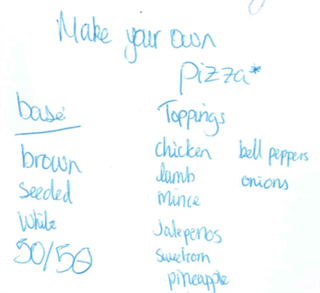 Make your own
pizza*
base
brown
seeded
white
50/50
Toppings
chicken
lamb
mince
Jalepenos
sweetcorn
pineapple
bell peppers
onions